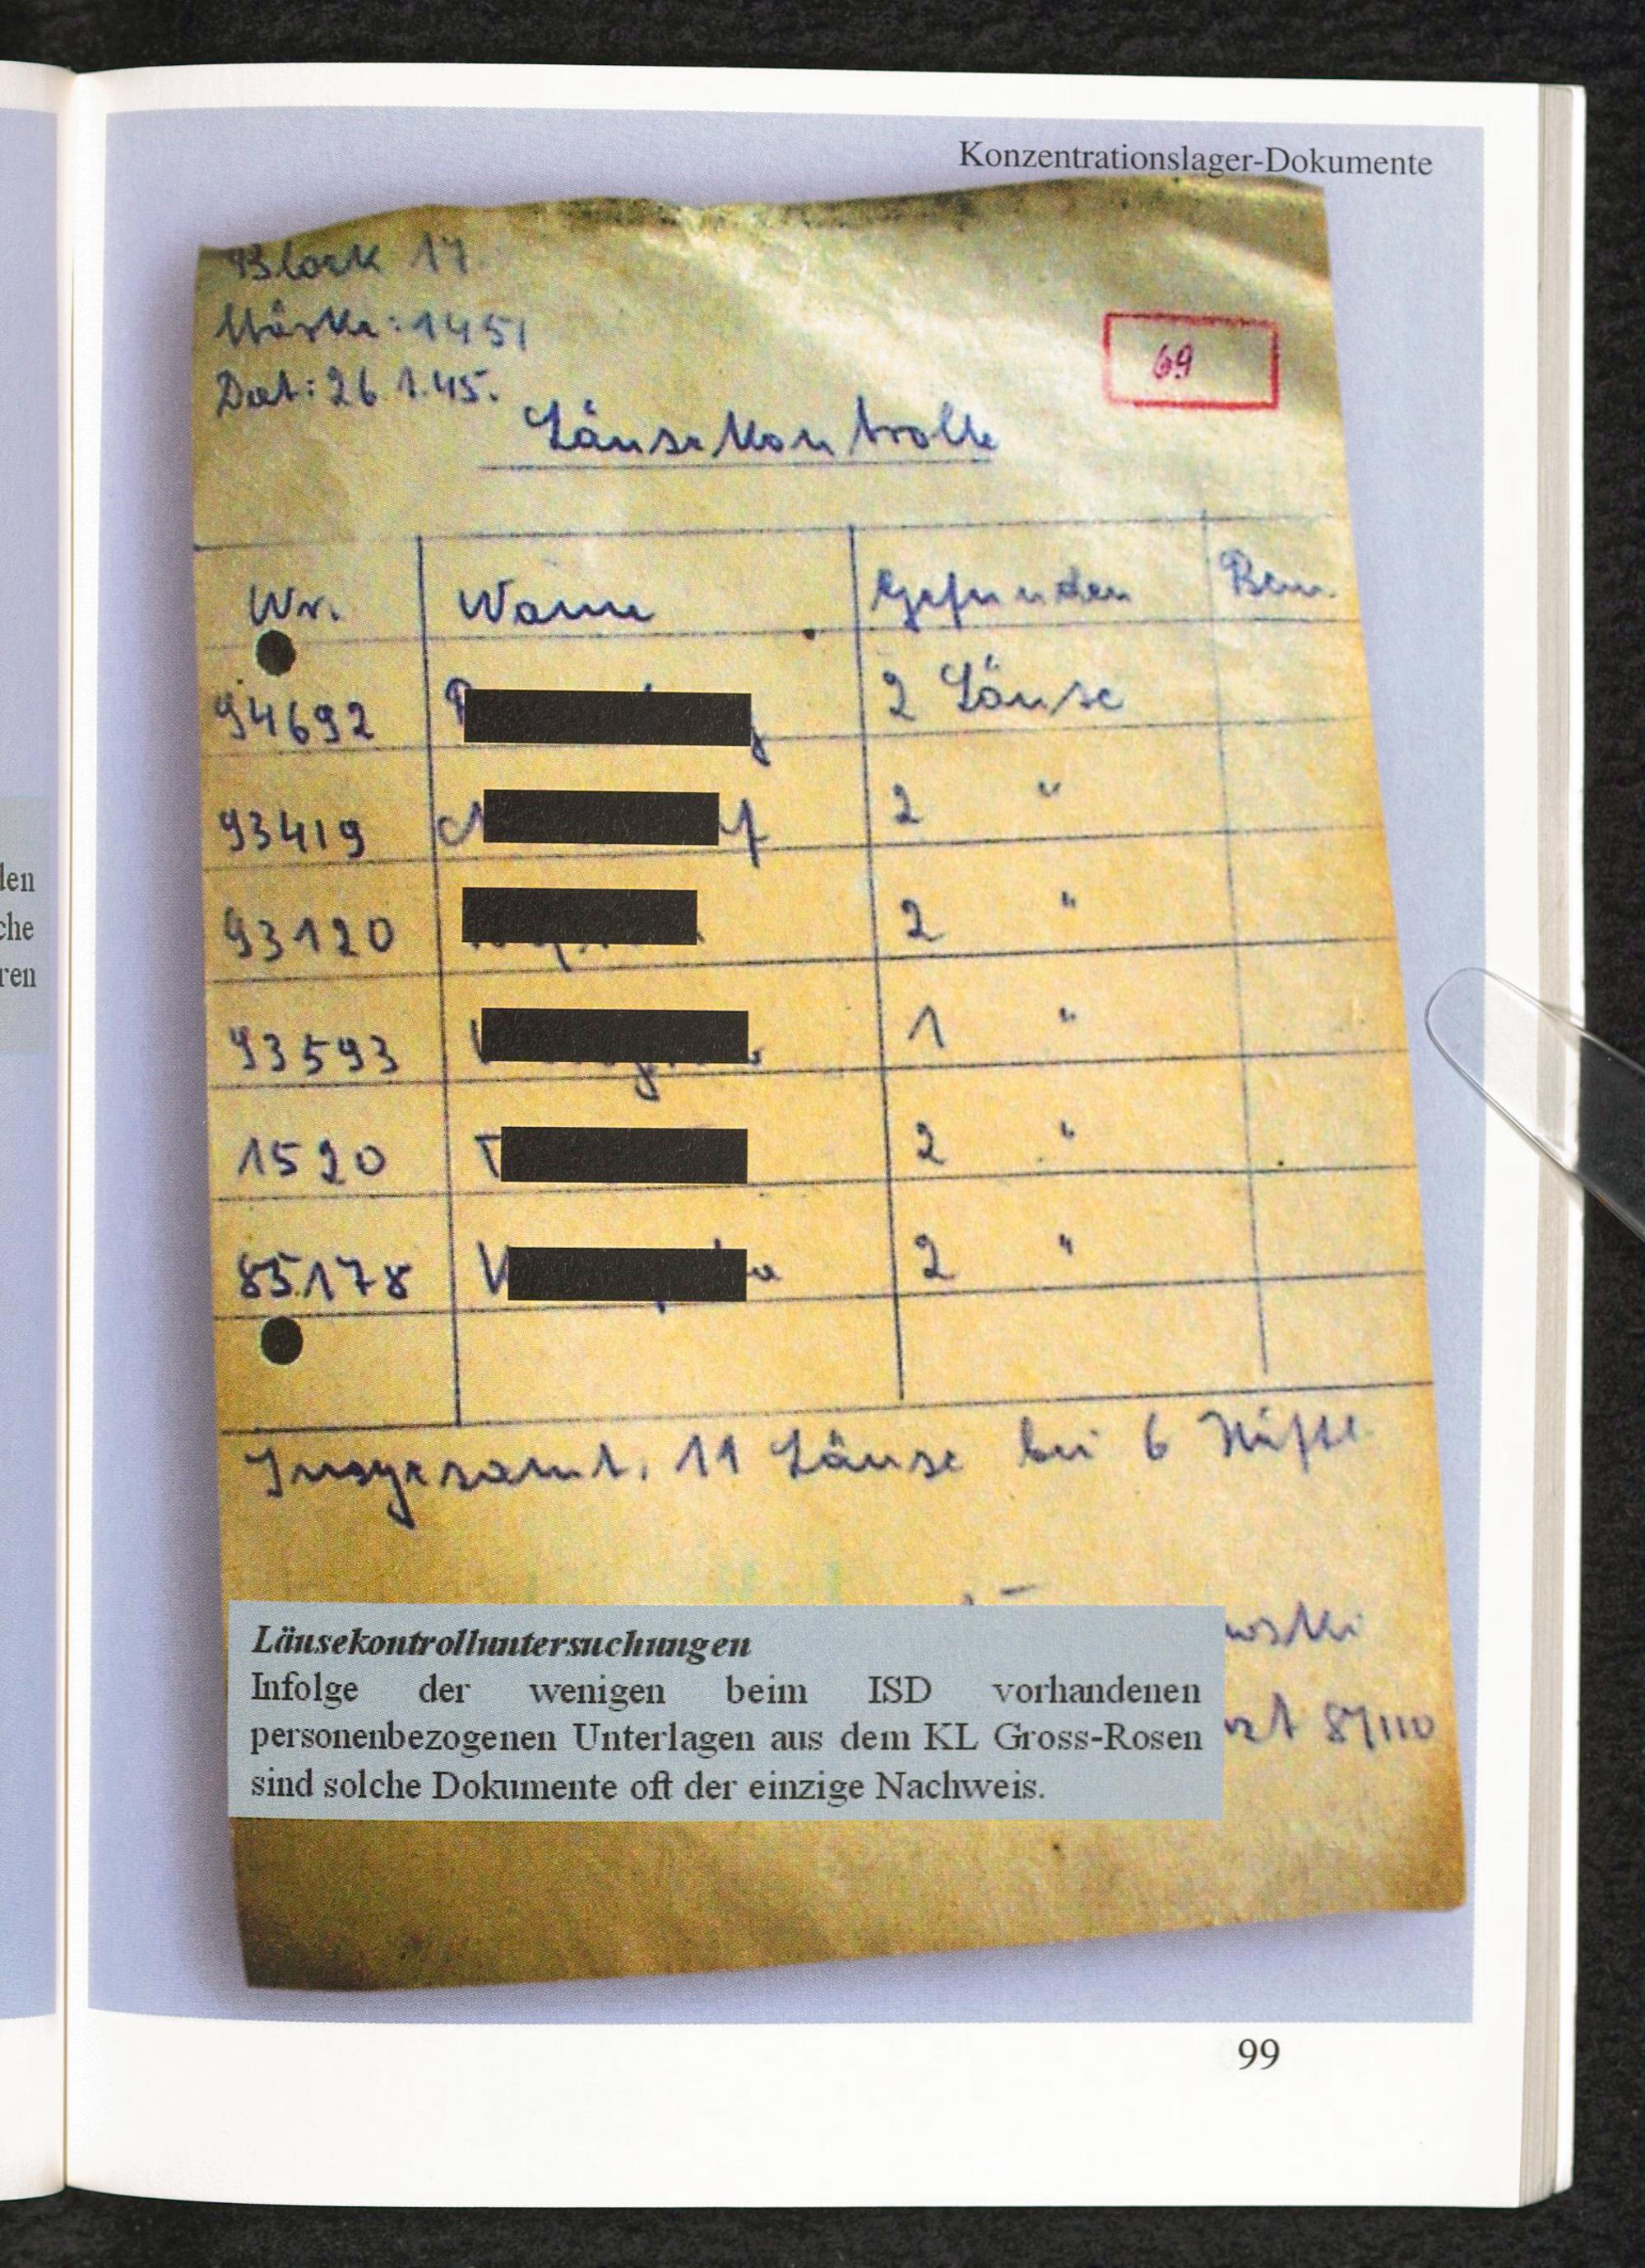 Konzentrationslager-Dokumente
Block 17
Stärke: 1451
Dat: 26.1.45.
69
Läusekontrolle
Nr. Name Gefunden Bem.
94692 2 Läuse
93419 2 "
93120 2 "
93593 1 "
1520 2 "
85178 2 "
Insgesamt. 11 Läuse bei 6 Häftl.
wski
Läusekontrolluntersuchungen
Infolge der wenigen beim ISD vorhandenen
personenbezogenen Unterlagen aus dem KL Gross-Rosen
sind solche Dokumente oft der einzige Nachweis.
den
che
ren
99